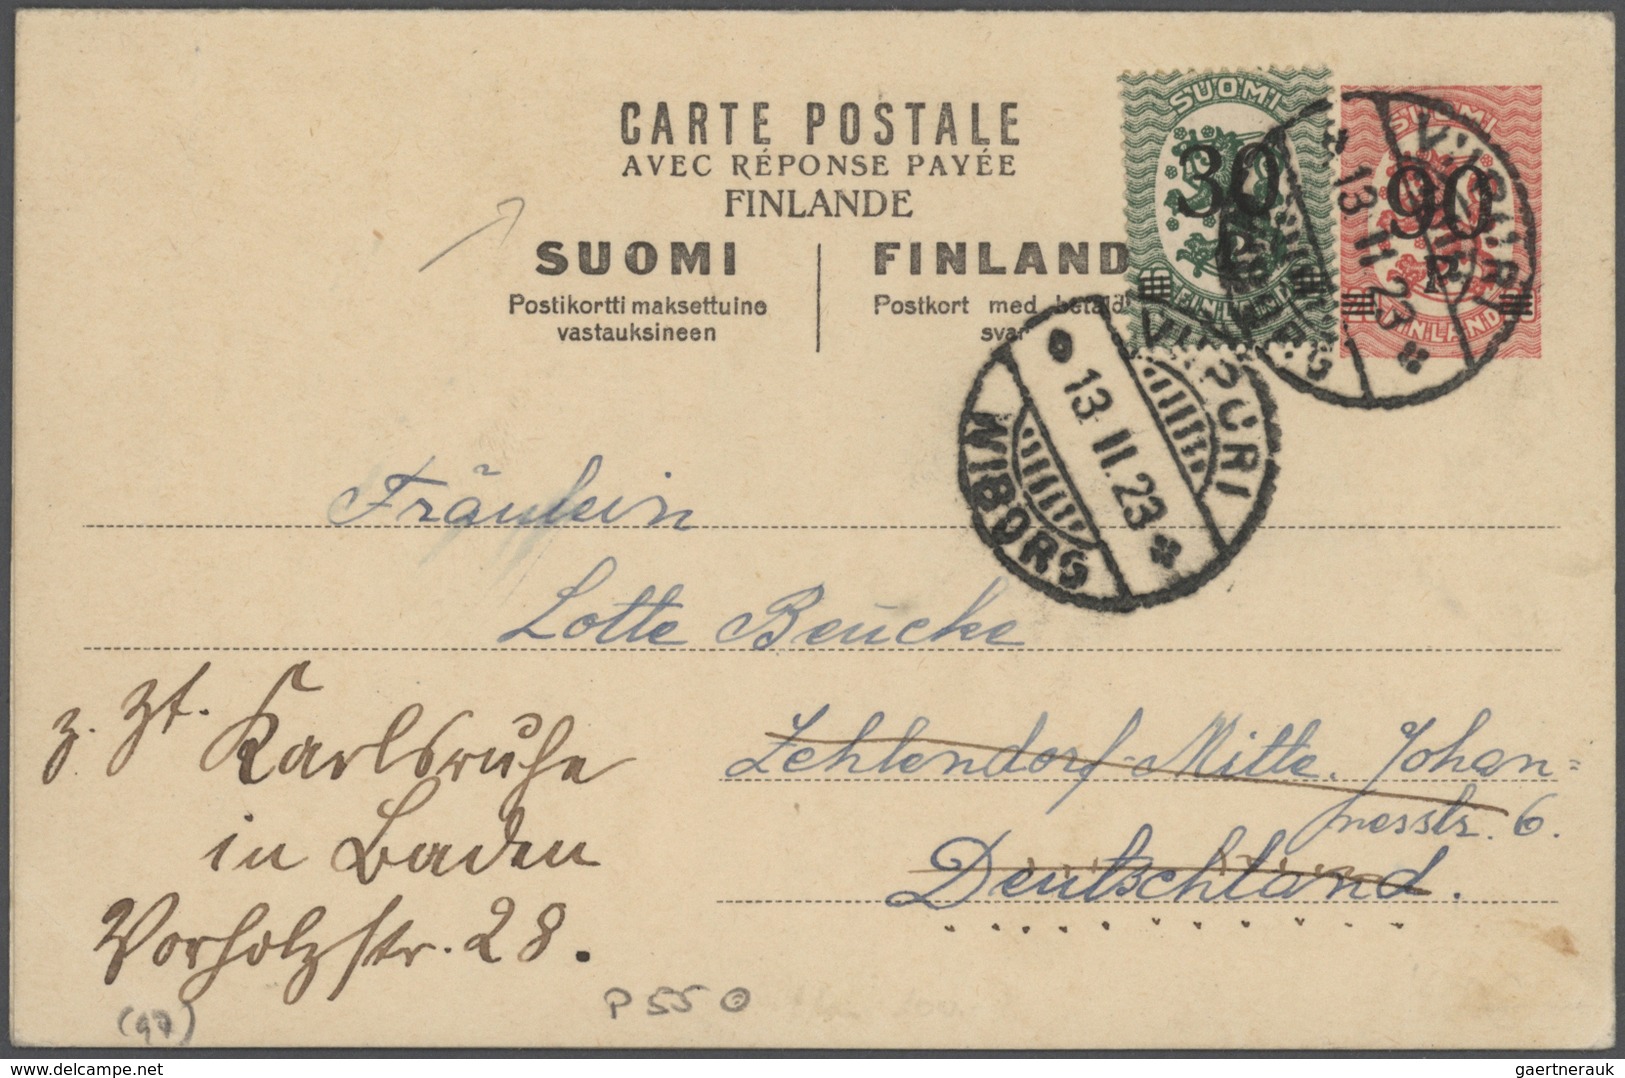 CARTE POSTALE
AVEC RÉPONSE PAYÉE
FINLANDE
SUOMI
Postikortti maksettuine
vastauksineen
FINLAND
Postkort med betald
svar
SUOMI
30
P
FINLAND
SUOMI
90
P
FINLAND
VIIPURI
13.II.23
WIBORG
VIIPURI
13.II.23
WIBORG
Fräulein
Lotte Beucke
Zehlendorf-Mitte. Johan=
nesstr. 6.
Deutschland.
z. Zt. Karlsruhe
in Baden
Vorholzstr. 28.
P 55
(97)
www.delcampe.net
gaertnerauk